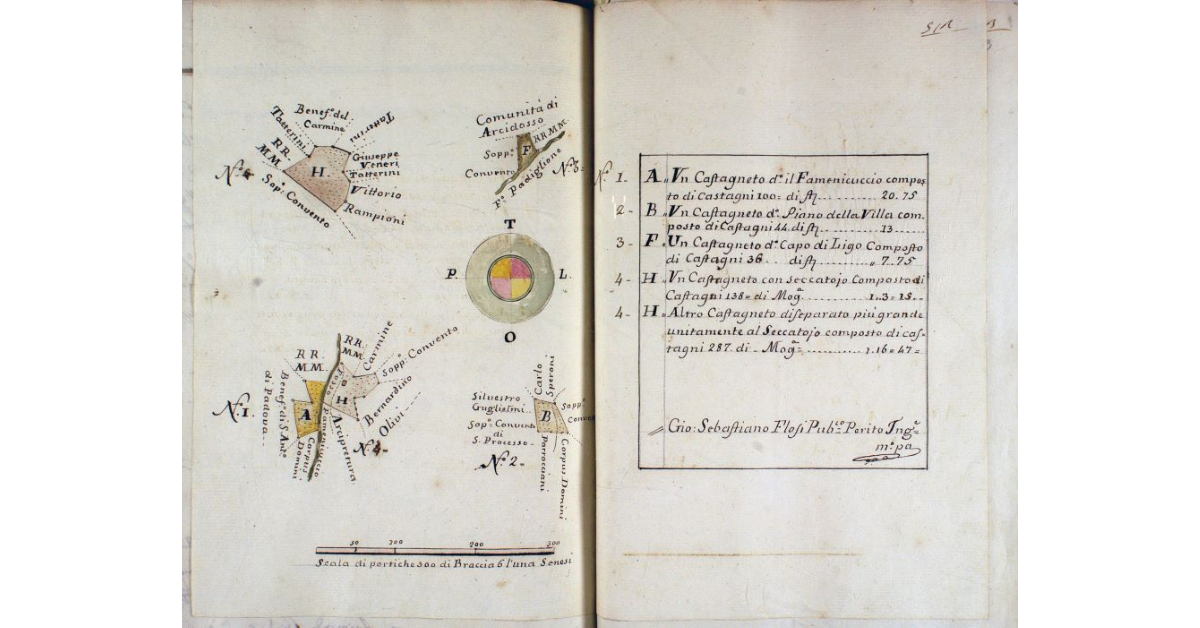 Benef.º del
Carmine
Tatterini
Tatterini
RR.
MM.
Giuseppe
Veneri
Tatterini
H
Nº 4
Vittorio
Rampioni
Sop.º Convento
Comunitá di
Arcidosso
RR MM.
F
Sopp.º
Convento
Fº Padiglione
Nº 3
T
P.
L.
O
RR.
MM.
RR.
MM.
Carmine
Sopp.º Convento
Bernardino
Olivi
H
A
Nº 1.
Benef.º di S. Antº
di Padova
Corpus
Domini
Fosso Famenicuccio
Arcipretura
Nº 4
Carlo
Speroni
Silvestro
Guglielmi
B
Sopp.º
Conven
Sop.º Convento
di
S. Processo
Parrocciani
Corpus Domini
Nº 2
50 100 200 300
Scala di pertiche 300 di Braccia 6 l'una Senesi
Nº 1. A Vn Castagneto dº il Famenicuccio compos
to di Castagni 100= di st 20.75
2- B Vn Castagneto dº Piano della Villa com,
posto di Castagni 44. di st 13
3- F Un Castagneto dº Capo di Ligo Composto
di Castagni 36 di st 7.75
4- H Vn Castagneto con seccatojo Composto di
Castagni 138= di Mogª 1..3=15
4- H= Altro Castagneto diseparato piú grande
unitamente al Seccatojo composto di cas,
tagni 287. di Mogª 1.16=47=
Gio: Sebastiano Flosi Pub.co Perito Ingª
mº pa